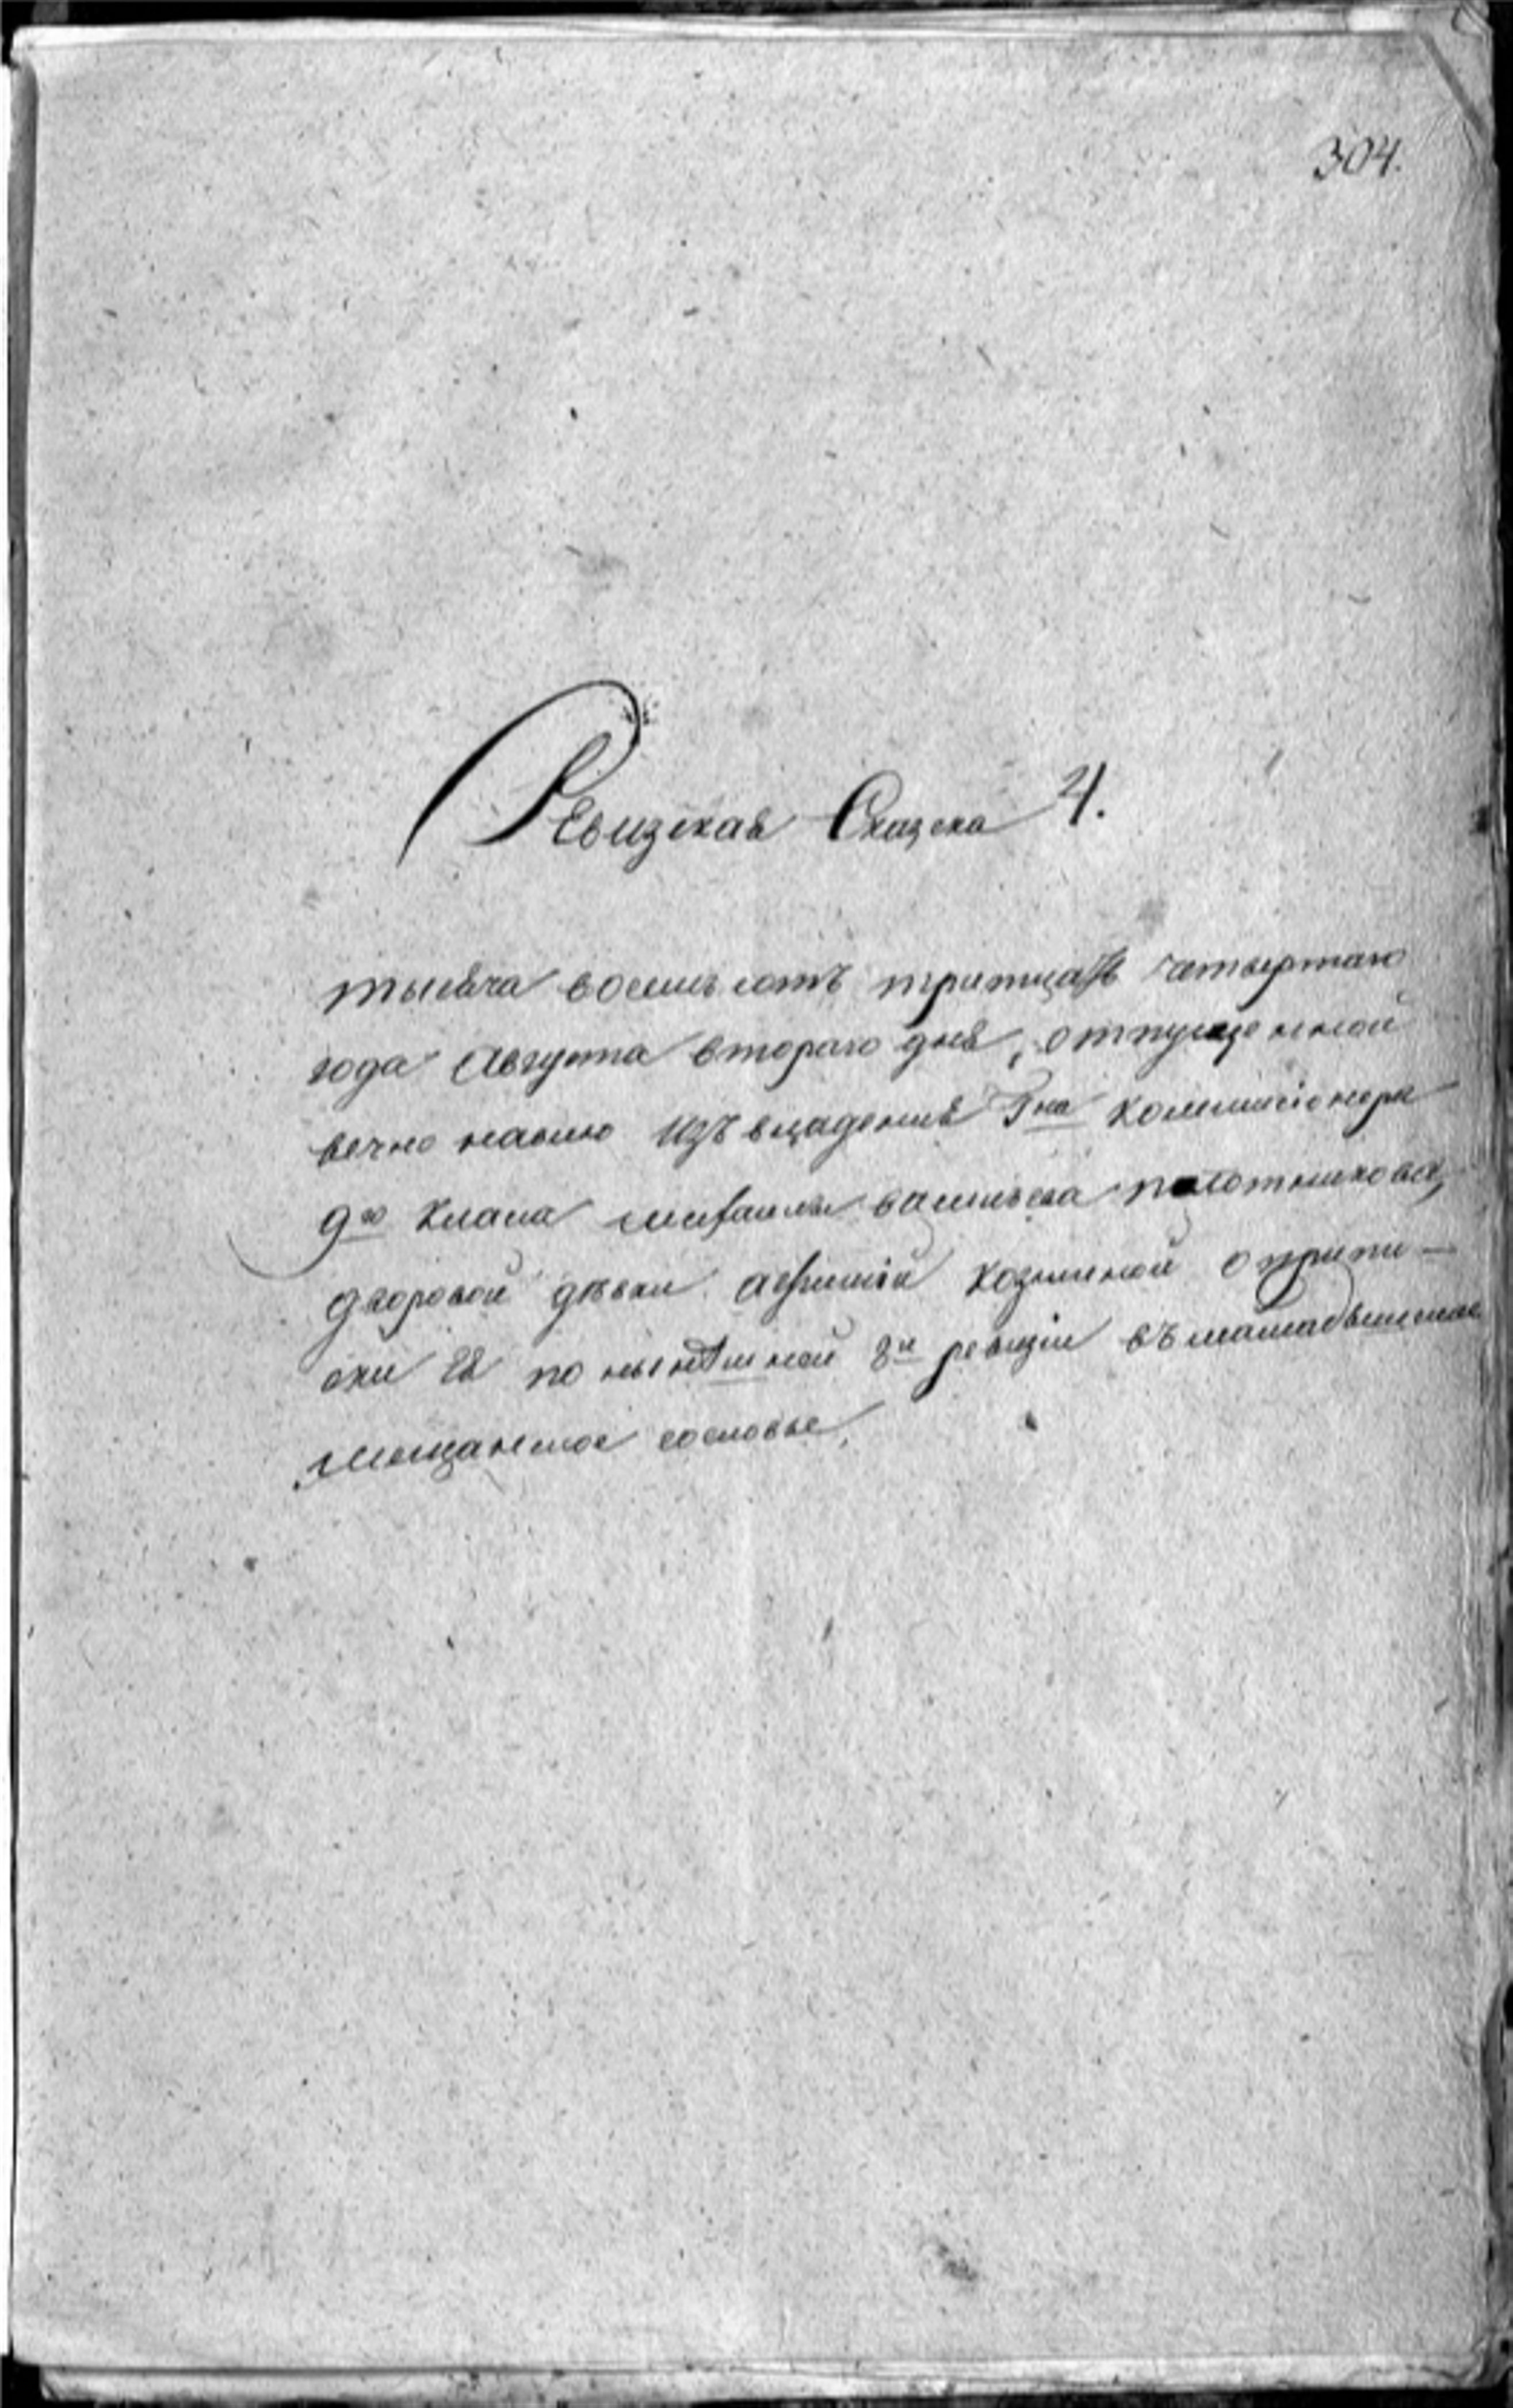 304.
Ревизская Сказска 4.
тысяча восемьсотъ тритцать четвертаго
года Августа втораго дня, отпущенной
вечно наволю изъ владения Гна комисионера
9го класа михаилы васильева
дворовой девки козминой о припи-
ски ея по нынѣшней 8й ревизiи въ
мещанское сословье,